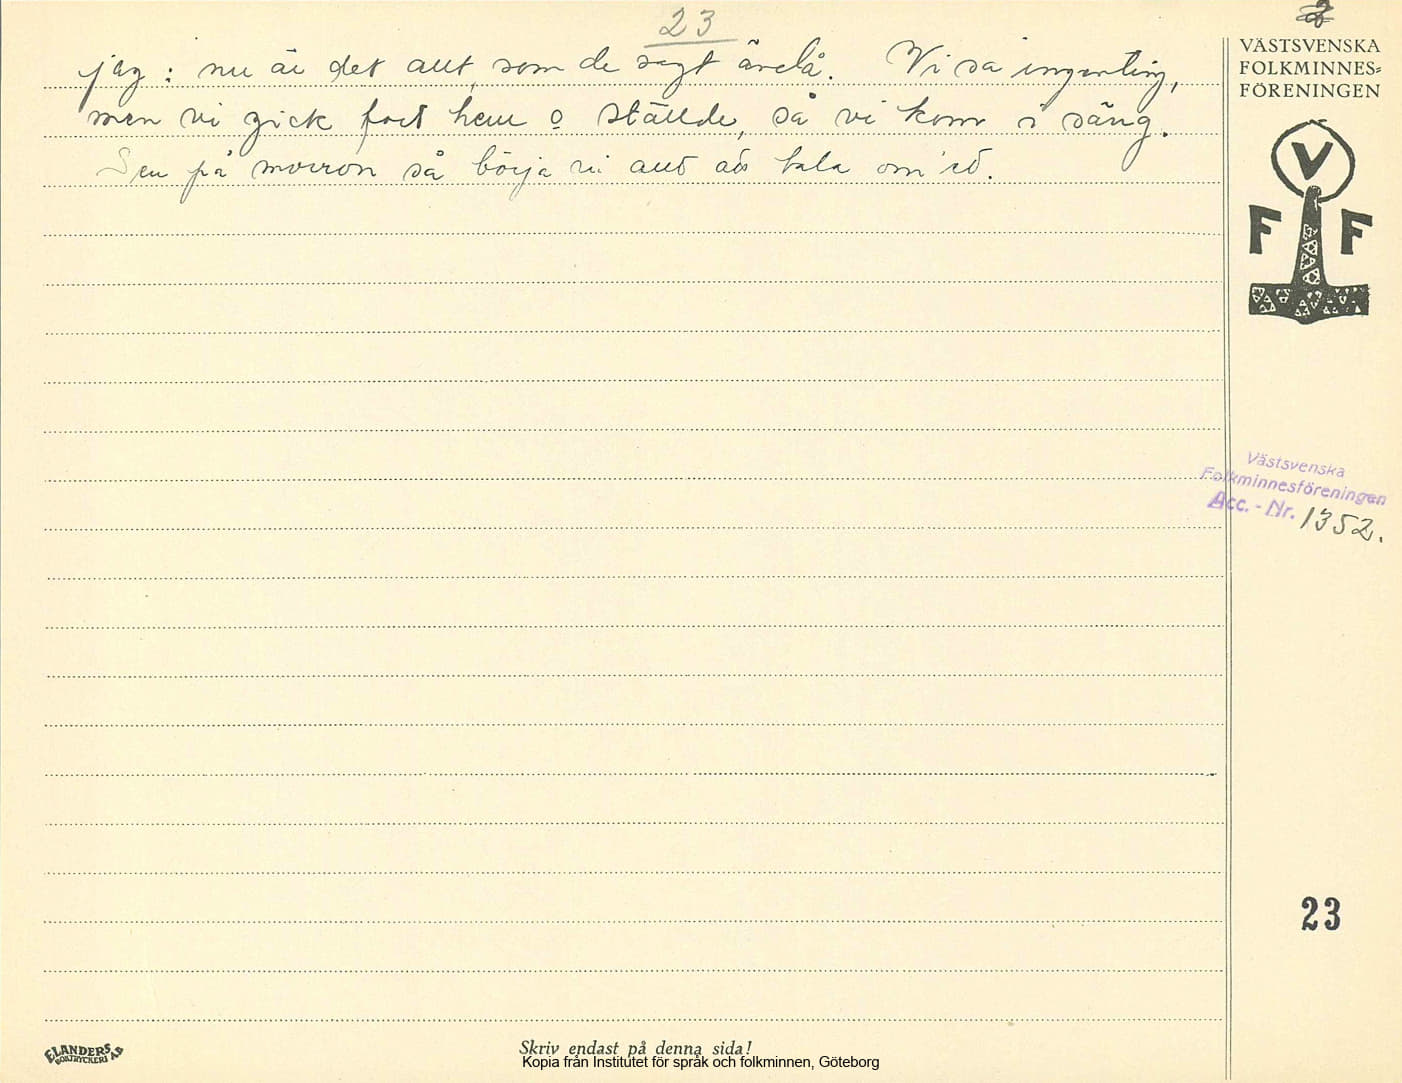 23
2
jag: nu är det allt som de sagt ändå. Vi sa ingenting,
men vi gick fort hem o ställde, så vi kom i säng.
Sen på morron så börja vi allt att tala om'ed.
VÄSTSVENSKA
FOLKMINNES-
FÖRENINGEN
V
F F
Västsvenska
Folkminnesföreningen
Acc. - Nr. 1352.
23
ELANDERS
BOKTRYCKERI AB
Skriv endast på denna sida!
Kopia från Institutet för språk och folkminnen, Göteborg